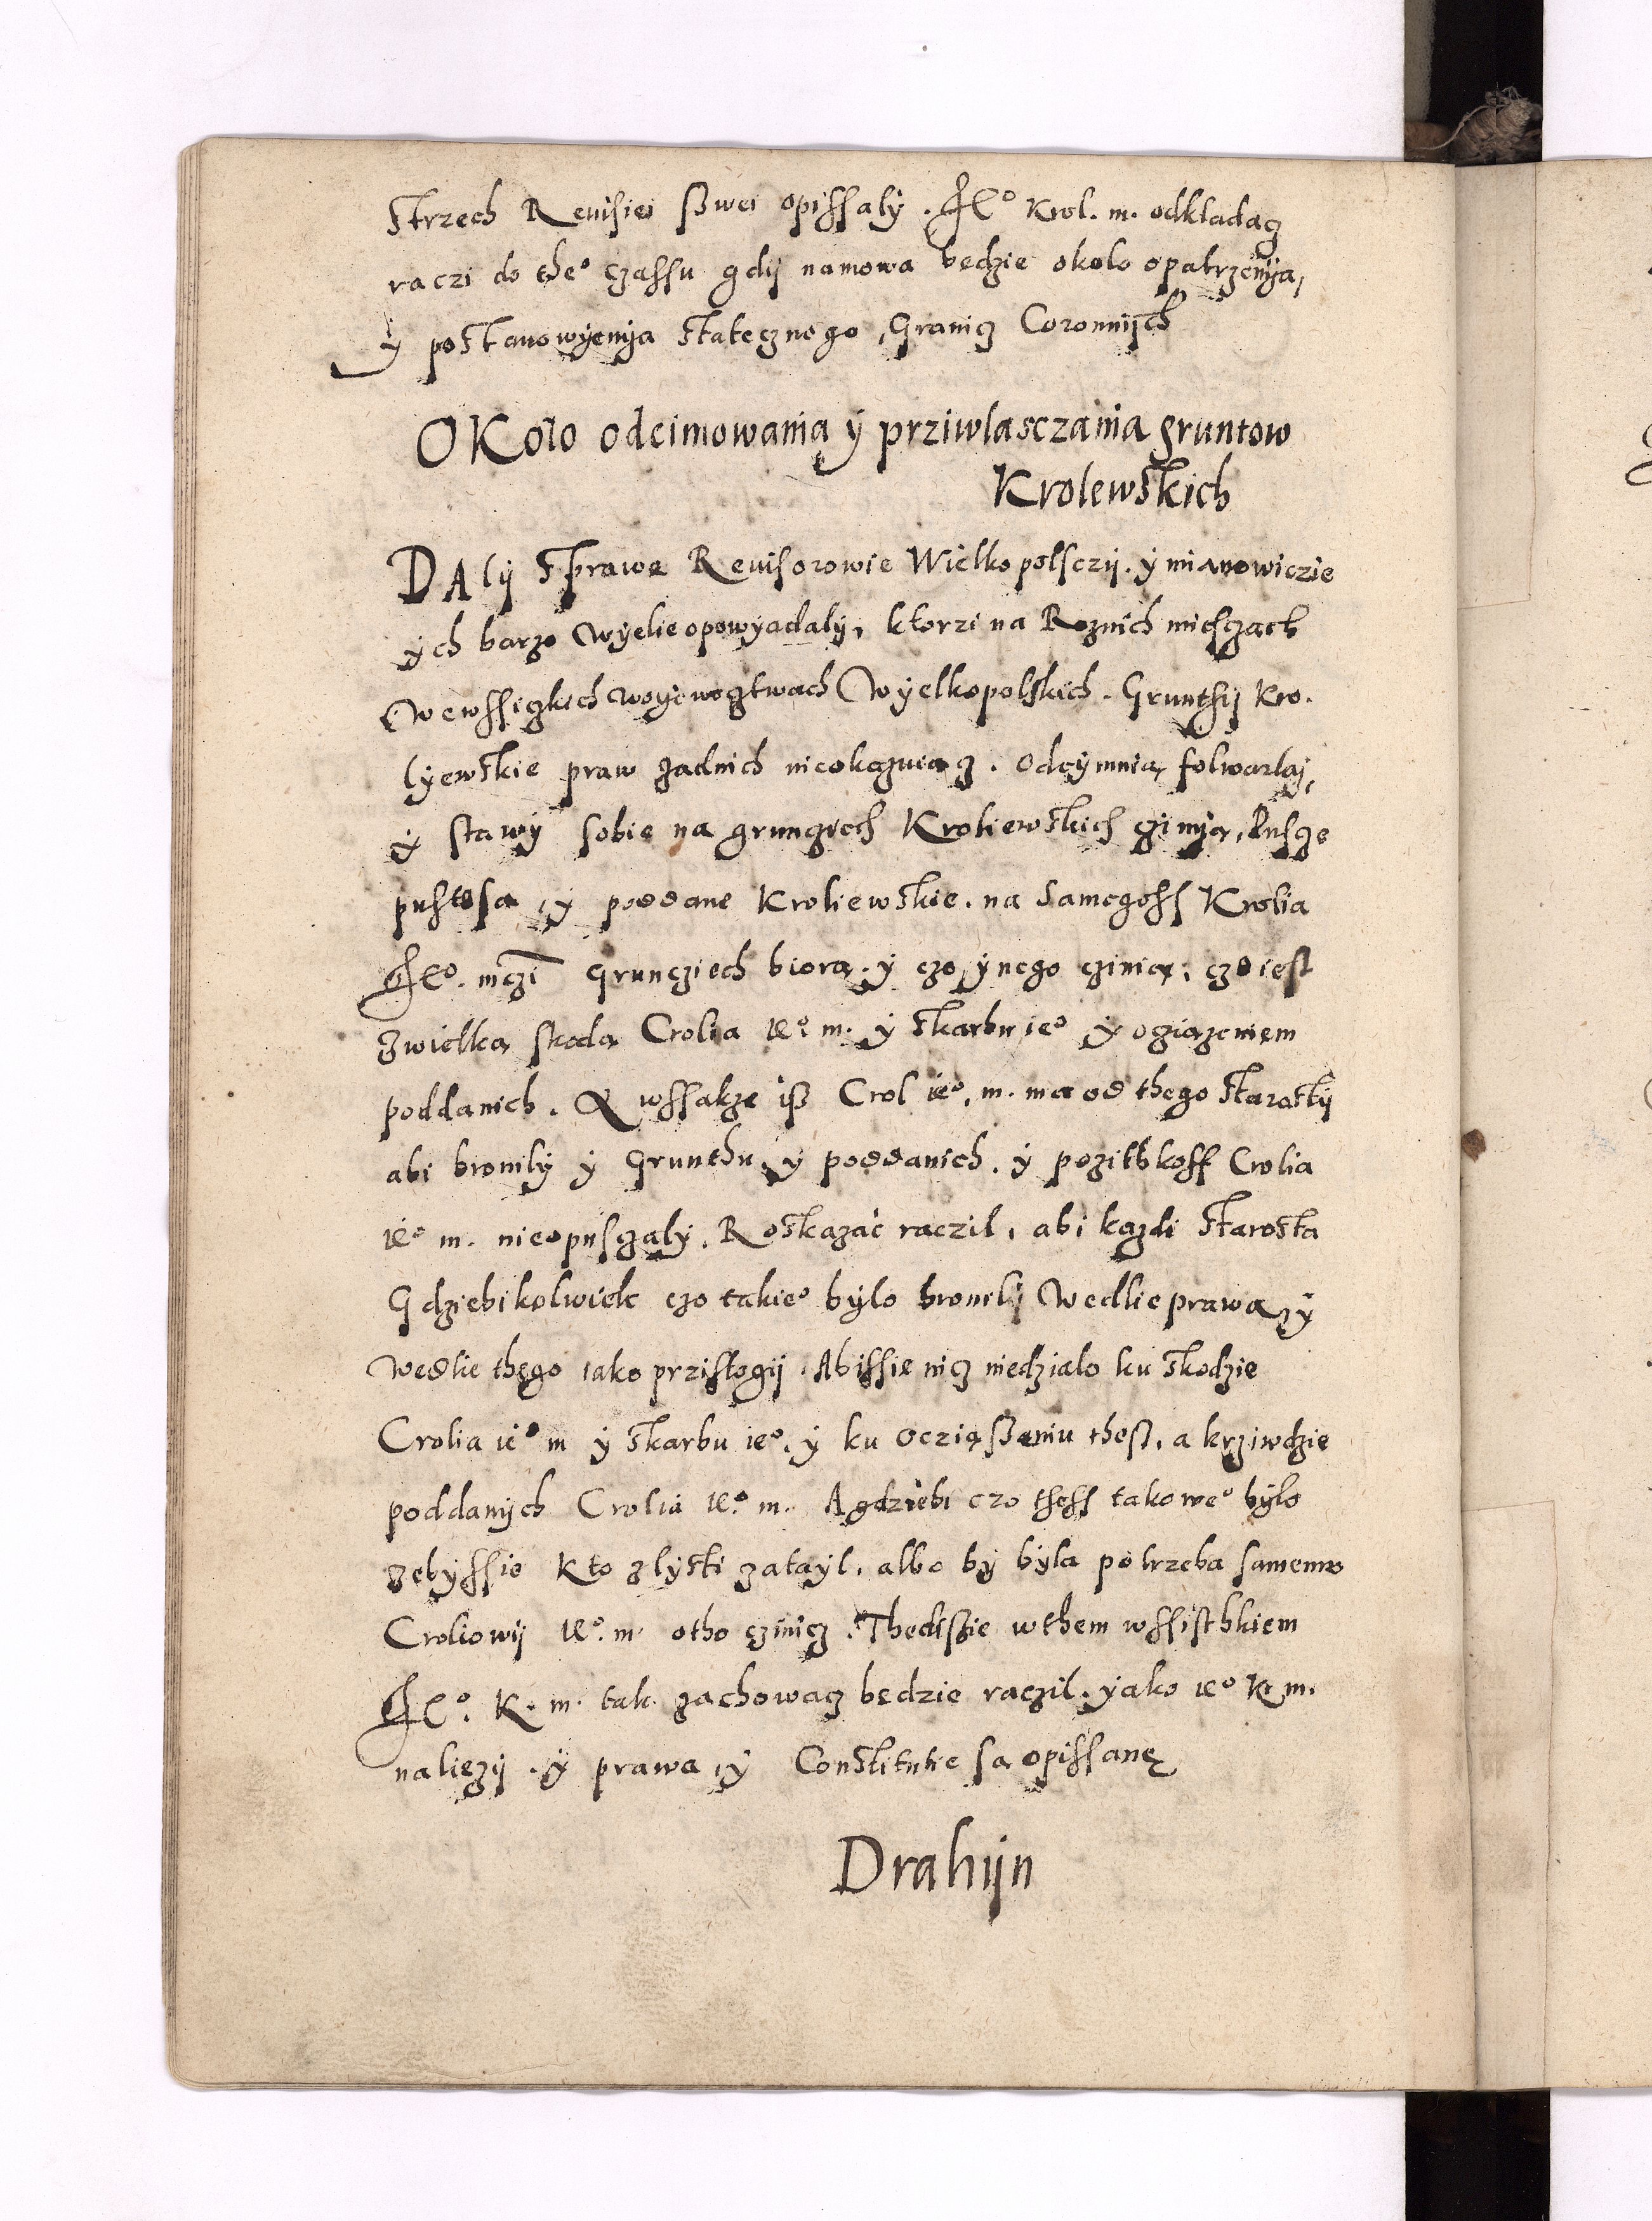 strzech Reuisiei sswei opissaly . Jeº Krol. m. odkladacz
raczi do theº czassu gdij namowa bedzie okolo opatrzenija,
y postanowyenija statecznego , Granicz Coronnijch
OKolo odeimowania ÿ prziwlasczania gruntow
Krolewskich
DAlij sprawe Reuisorowie Wielkopolsczij . ÿ mianowiczie
ÿch barzo wÿelie opowÿadalij, ktorzi na Roznich miesczach
Wewssiczkich woÿewogtwach Wÿelkopolskich . Grunthij Kro.
lÿewskie praw zadnich nieokazuiacz . odeÿmuia, folwarkij,
ÿ stawÿ sobie na grunczech Kroliewskich czinija, Pusche
pustosa , ÿ poddane Kroliewskie . na samegoss Krolia
Jeº. mczi Gruncziech biora . ÿ czo ÿnego czinia, czo iest
zwielka skoda Crolia ieº m. ÿ skarbu ieº ÿ ocziazeniem
poddanich . A wssakze iss Crol ieº. m. ma od thego starostij
abi bronilÿ ÿ Grunthu, ÿ poddanich . ÿ pozithkoff Crolia
ieº m. nieopusczalÿ. Roskazać raczil, abi kazdi starosta
Gdziebikolwiek czo takieº bÿlo bronilij wedlie prawa, ÿ
wedlie thego iako przistogij . Abissie nicz niedzialo ku skodzie
Crolia ieº m ÿ skarbu ieº. ÿ ku ocziąssaniu thess, a krziwdzie
poddanÿch Crolia ieº. m. A gdziebi czo thess takoweº bÿlo
zebÿssie kto zlÿsti zataÿl. albo bÿ bÿla potrzeba samemu
Croliowij ieº. m. otho czinicz . Thedissie wthem wssisthkiem
Jeº. K. m. tak zachowacz będzie raczil . ÿako ieº K. m.
naliezij . ÿ prawa , ÿ Constitutie sa opissanę
Drahijn